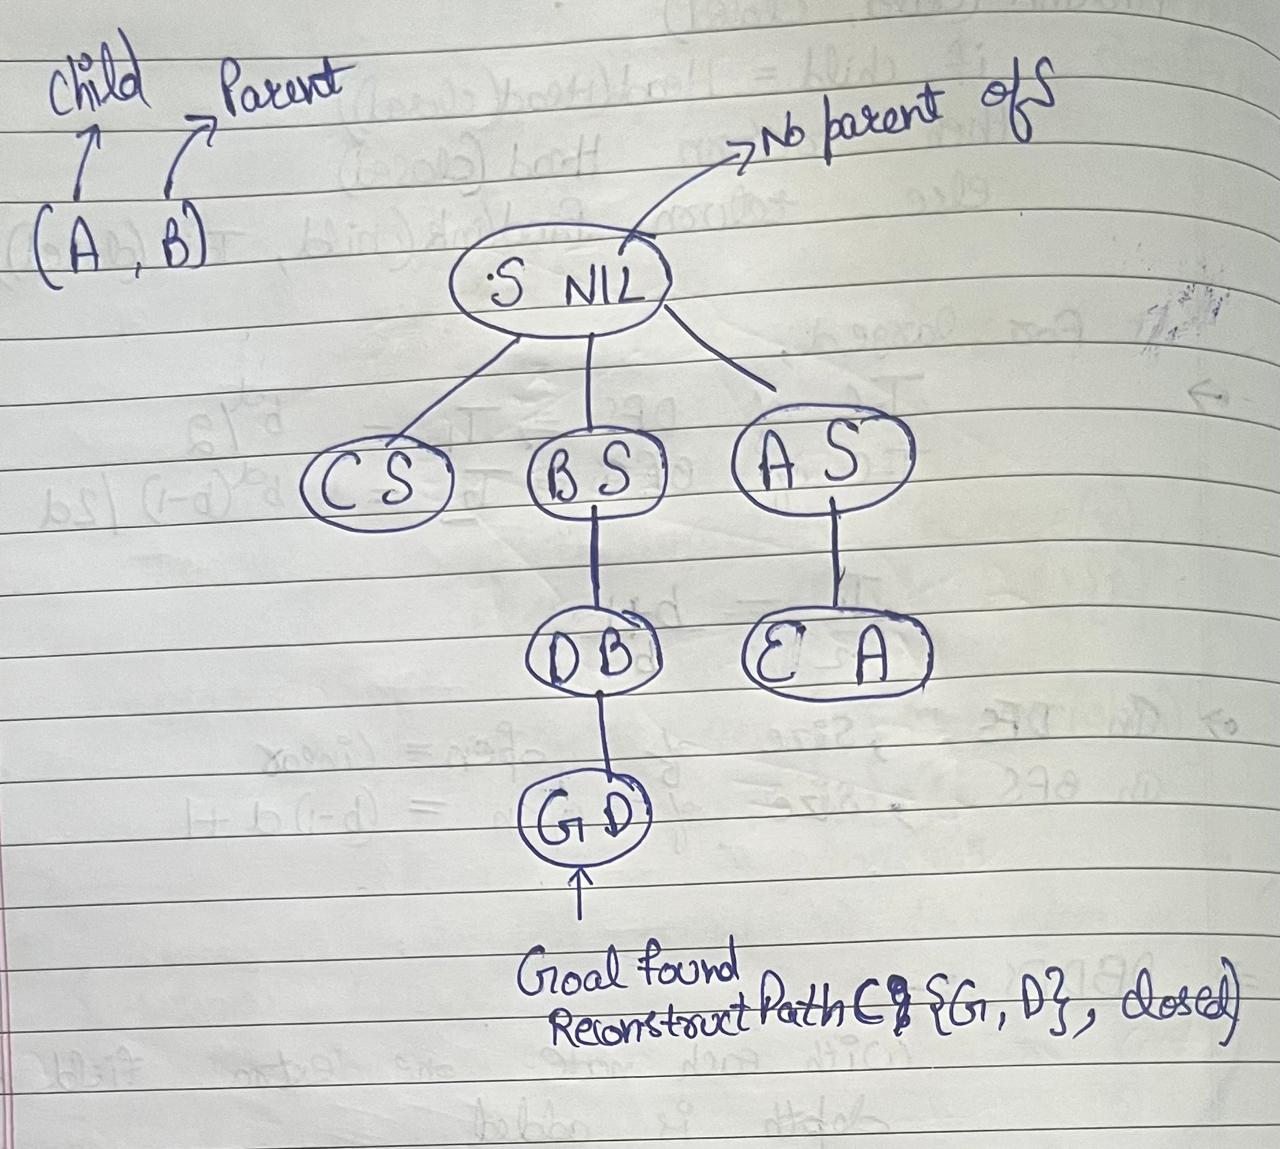 Child Parent
(A, B)
No parent of S
S NIL
C S B S A S
D B E A
G D
Goal found
ReconstructPath ( {G, D}, closed)